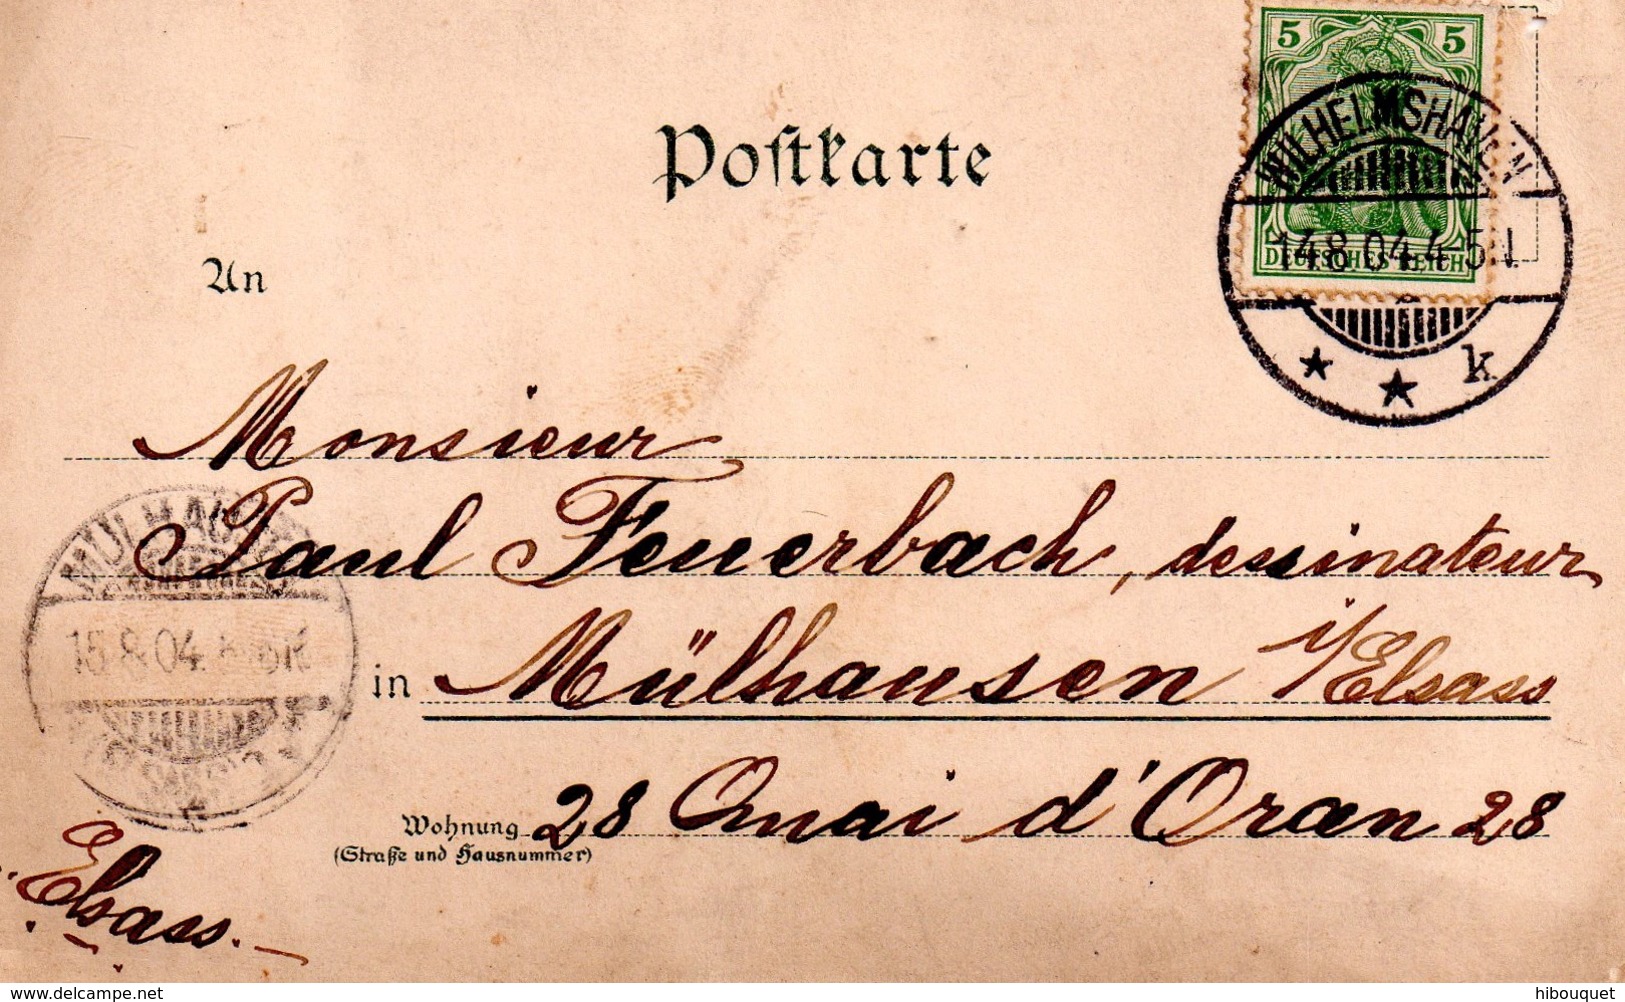 5 5
DEUTSCHES REICH
WILHELMSHAVEN
14.8.04.4-5N.
* * k
Postkarte
An
Monsieur
Paul Feuerbach, dessinateur
in Mülhausen i/Elsass
Wohnung 28 Quai d'Oran 28
(Straße und Hausnummer)
Elsass.
MÜLHAUSEN
15.8.04.
website: delcampe.net
hibouquet